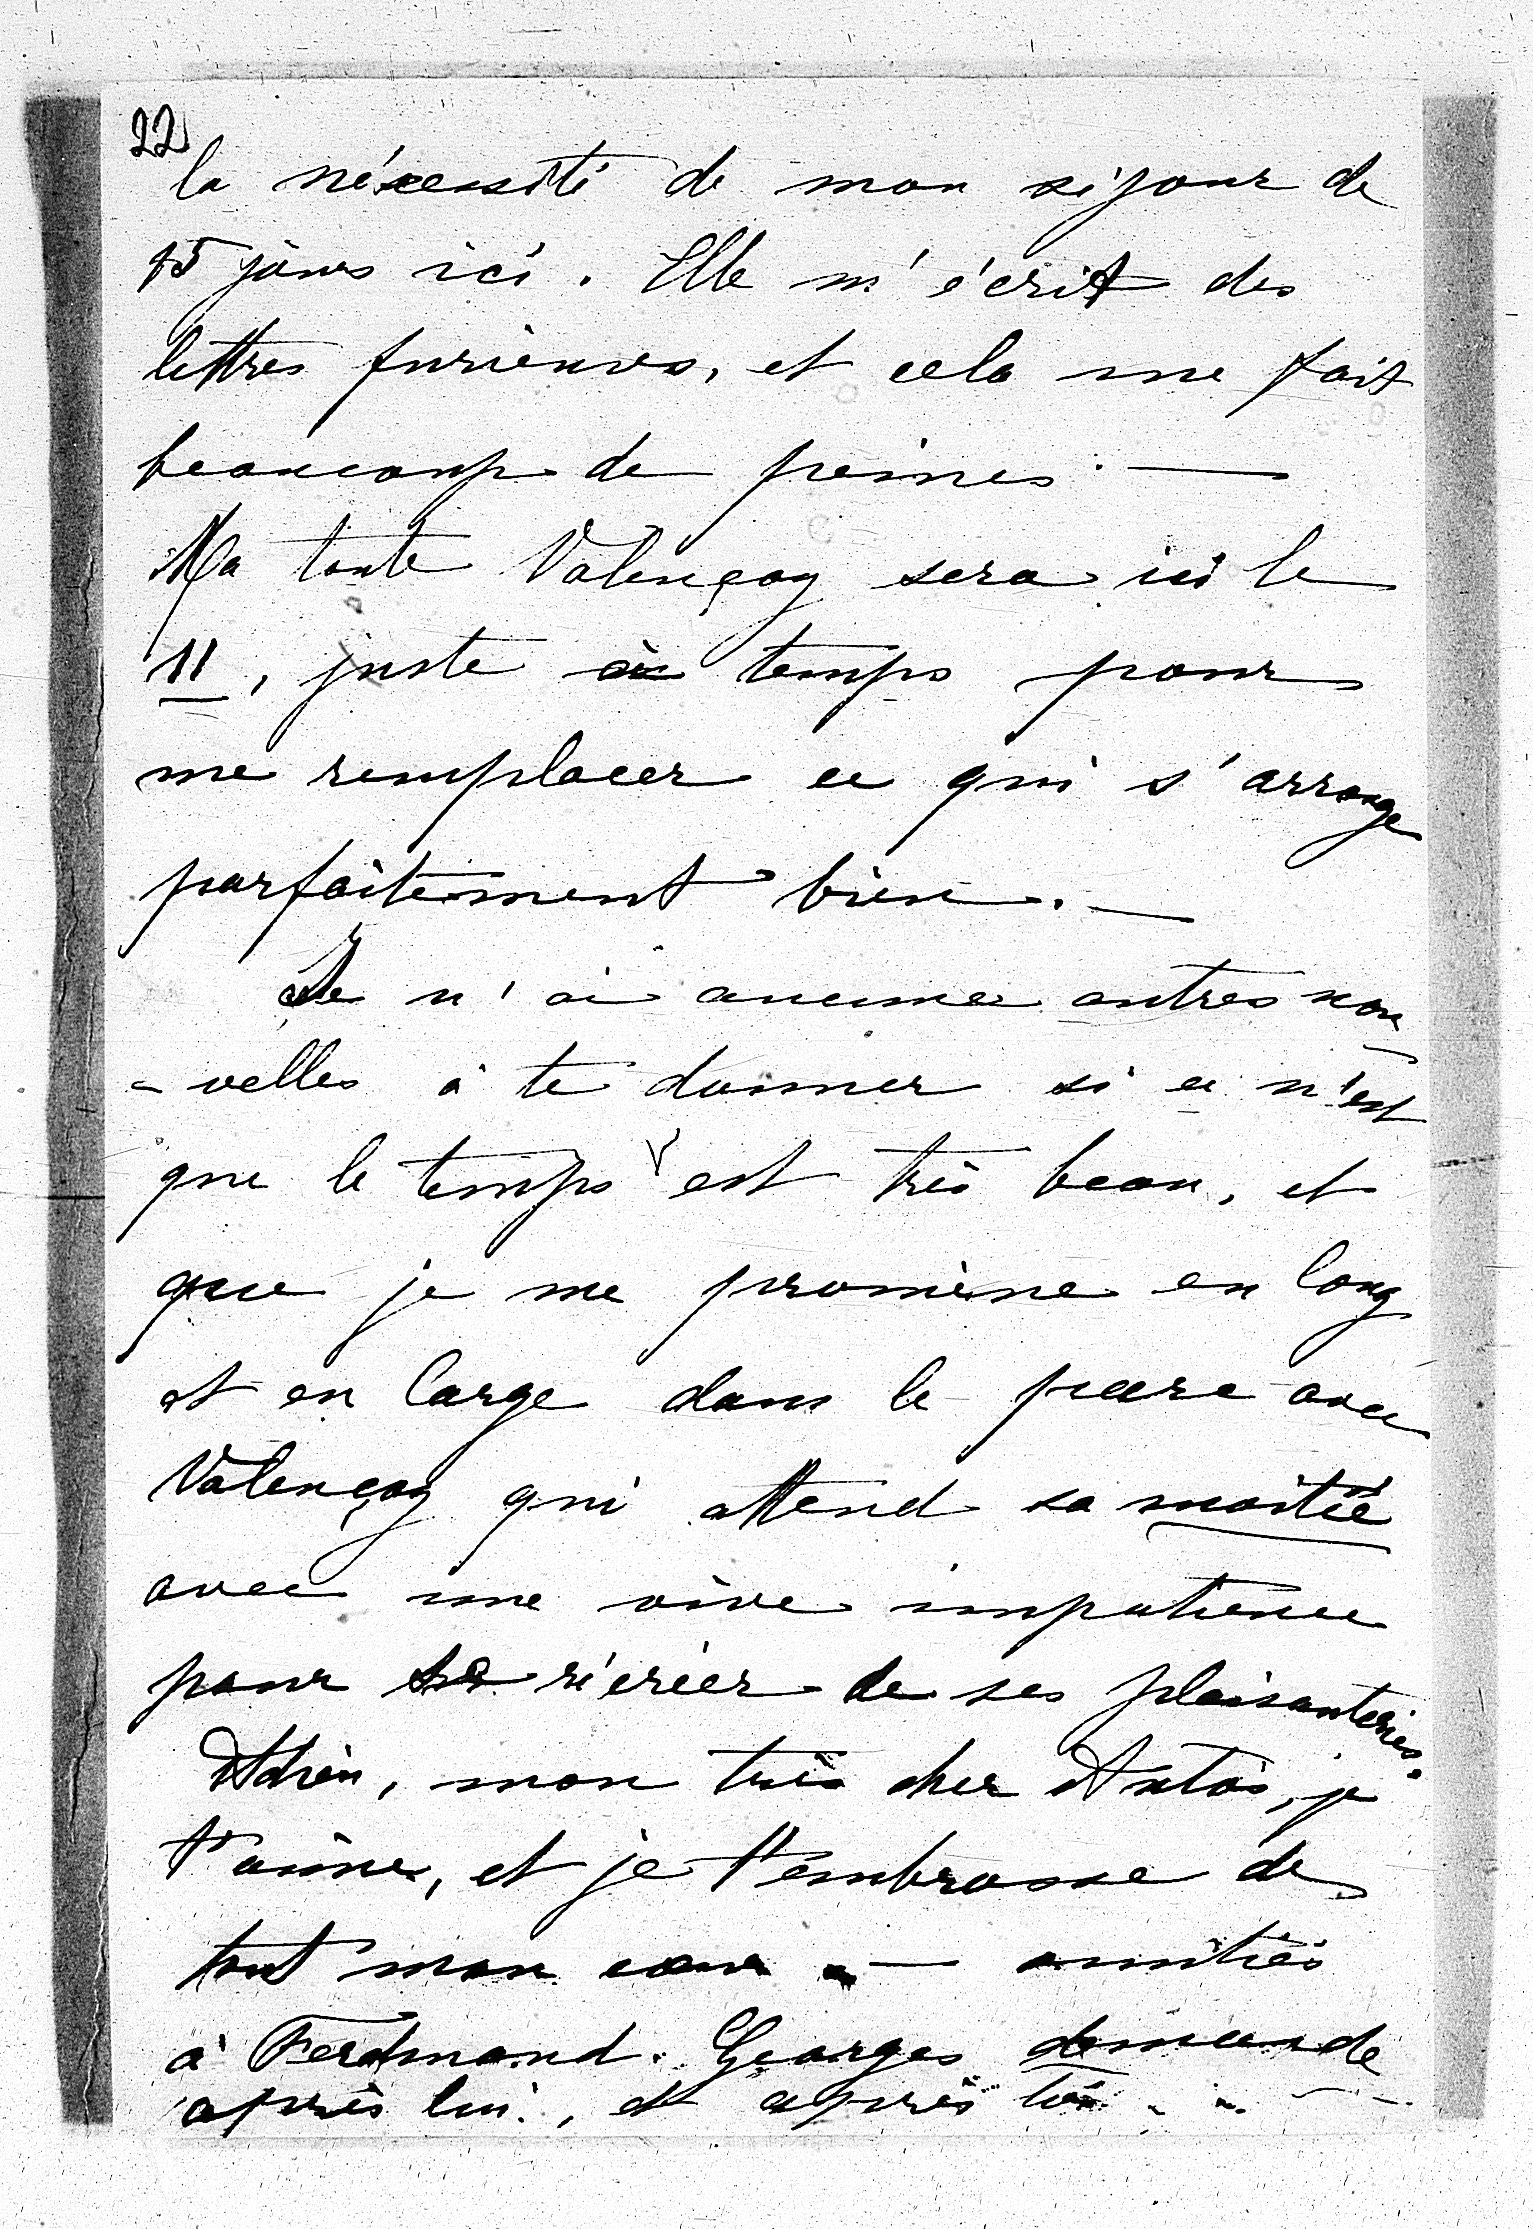 22
la nécessité de mon séjour de
15 jours ici. Elle m'écrit des
lettres furieuses, et cela me fait
beaucoup de peines. —
Ma tante Valençay sera ici le
11, juste à temps pour
me remplacer ce qui s'arrange
parfaitement bien. —
Je n'ai aucunes autres nou
- velles à te donner si ce n'est
que le temps est très beau, et
que je me promène en long
et en large dans le parc avec
Valençay qui attend sa moitié
avec une vive impatience
pour se récréer de ses plaisanteries.
Adieu, mon très cher Antos, je
t'aime, et je t'embrasse de
tout mon cœur. — amitiés
à Ferdinand. Georges demande
après lui, et après toi. . . —